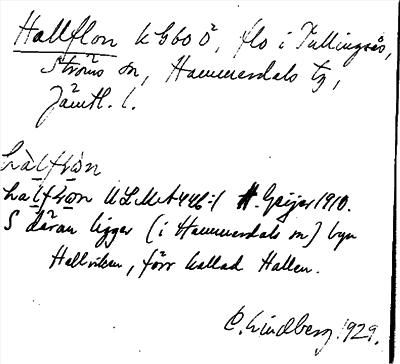 Hallflon kG60 ö, flo i Tullingsås,
Ströms sn, Hammerdals tg,
Jämtl. l.
hàlfɫòn
hàlfɫòn ULMA 446:1 H. Geijer 1910.
S därom ligger (i Hammerdals sn) byn
Hallviken, förr kallad Hallen.
C. Lindberg. 1929.